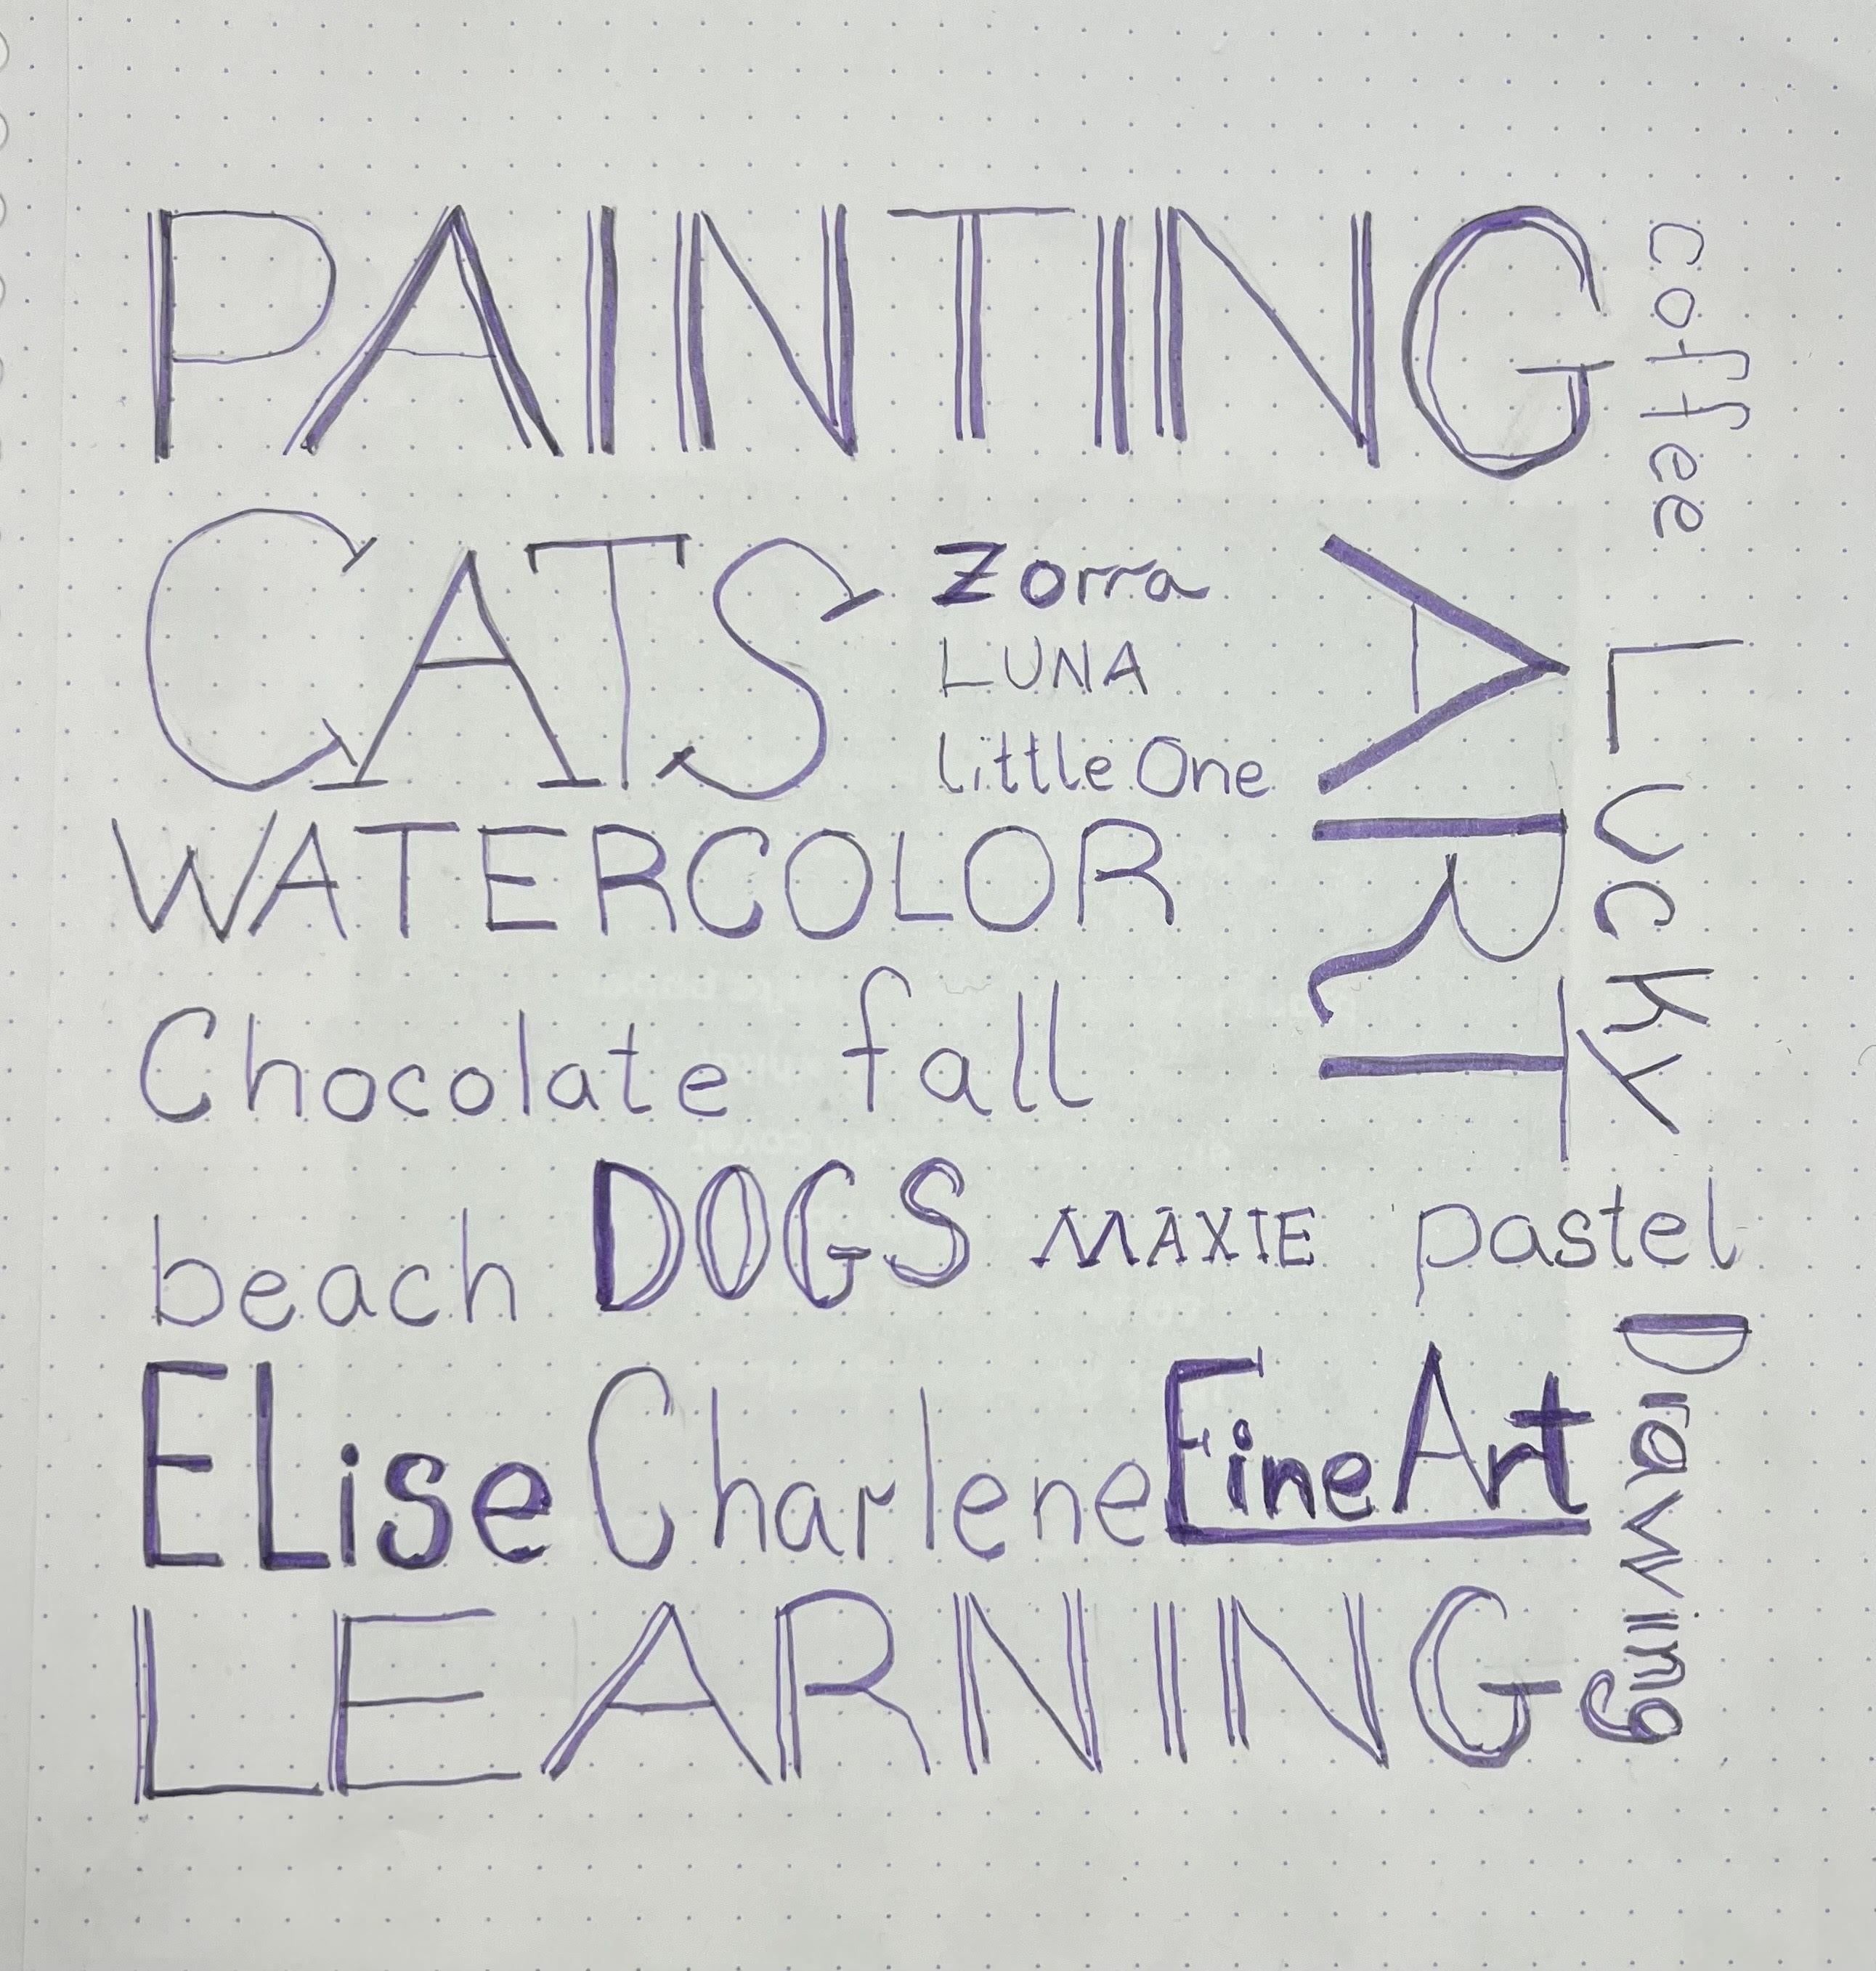 PAINTING
coffee
CATS
Zorra
LUNA
little One
ART
Lucky
WATERCOLOR
Chocolate fall
beach DOGS MAXIE pastel
ELise Charlene Fine Art
Drawing
LEARNING